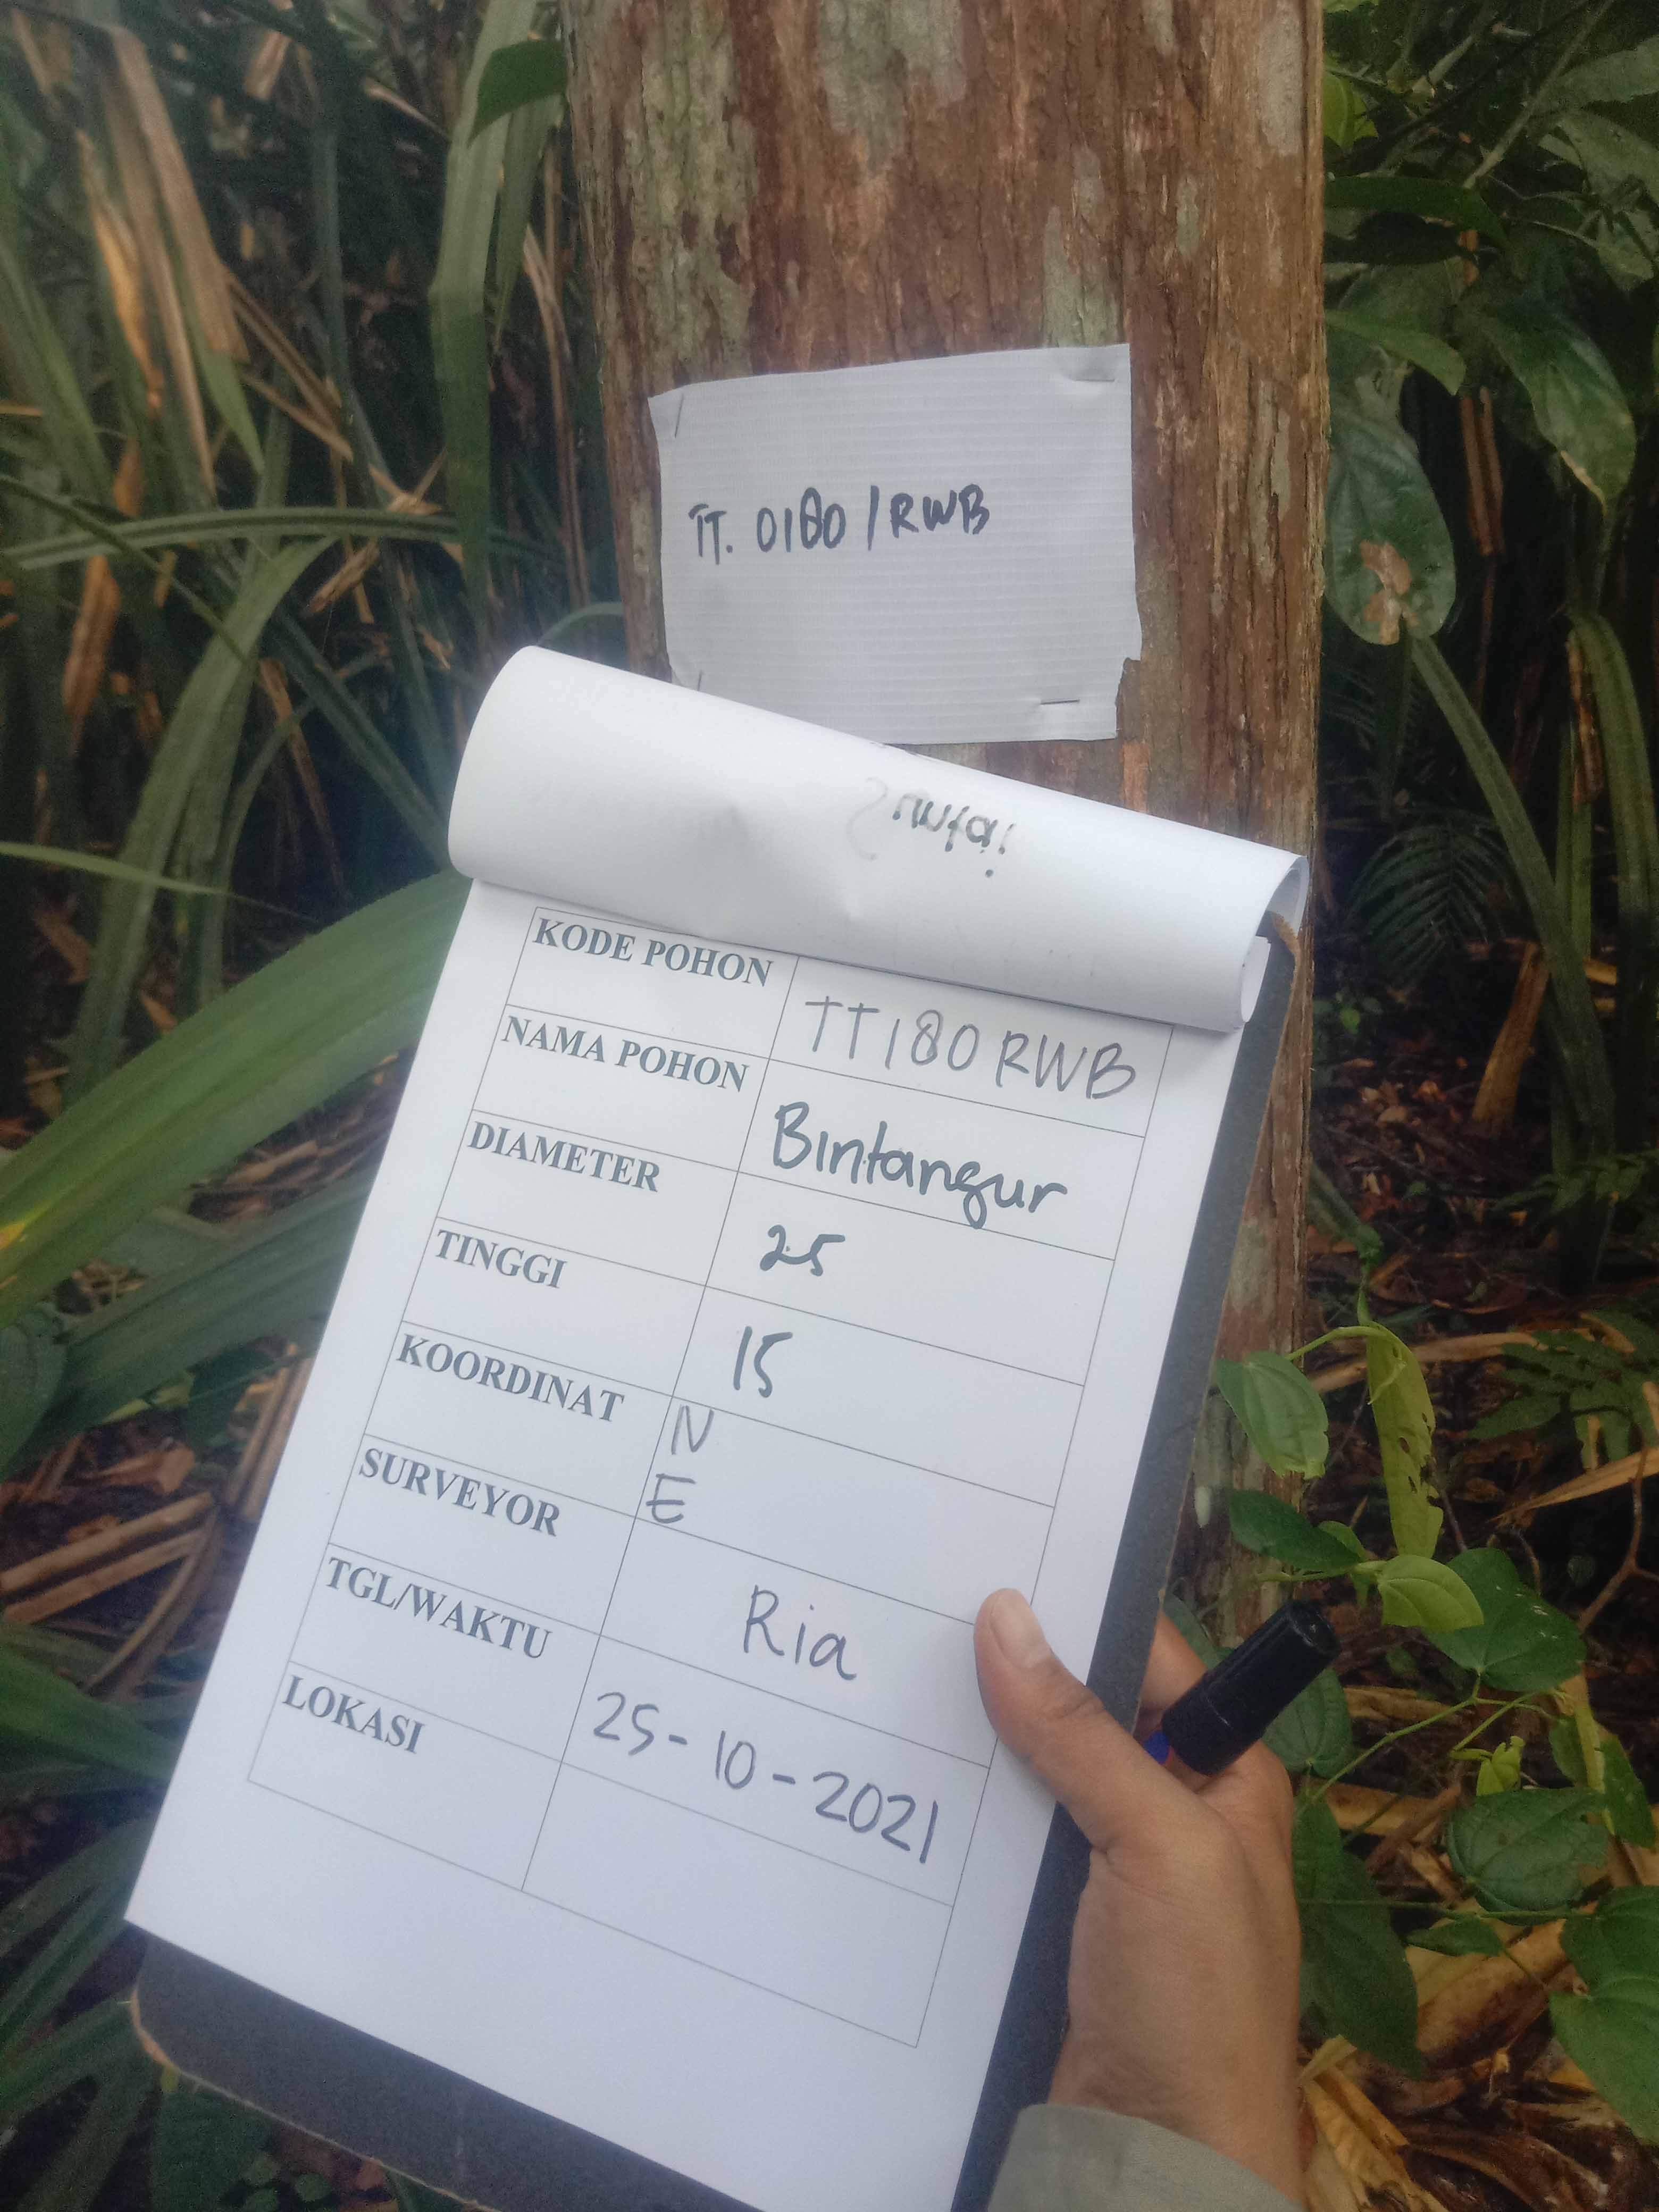 TT. 0180 / RWB
KODE POHON TT180RWB
NAMA POHON Bintangur
DIAMETER 25
TINGGI 15
KOORDINAT N
E
SURVEYOR Ria
TGL/WAKTU 25-10-2021
LOKASI